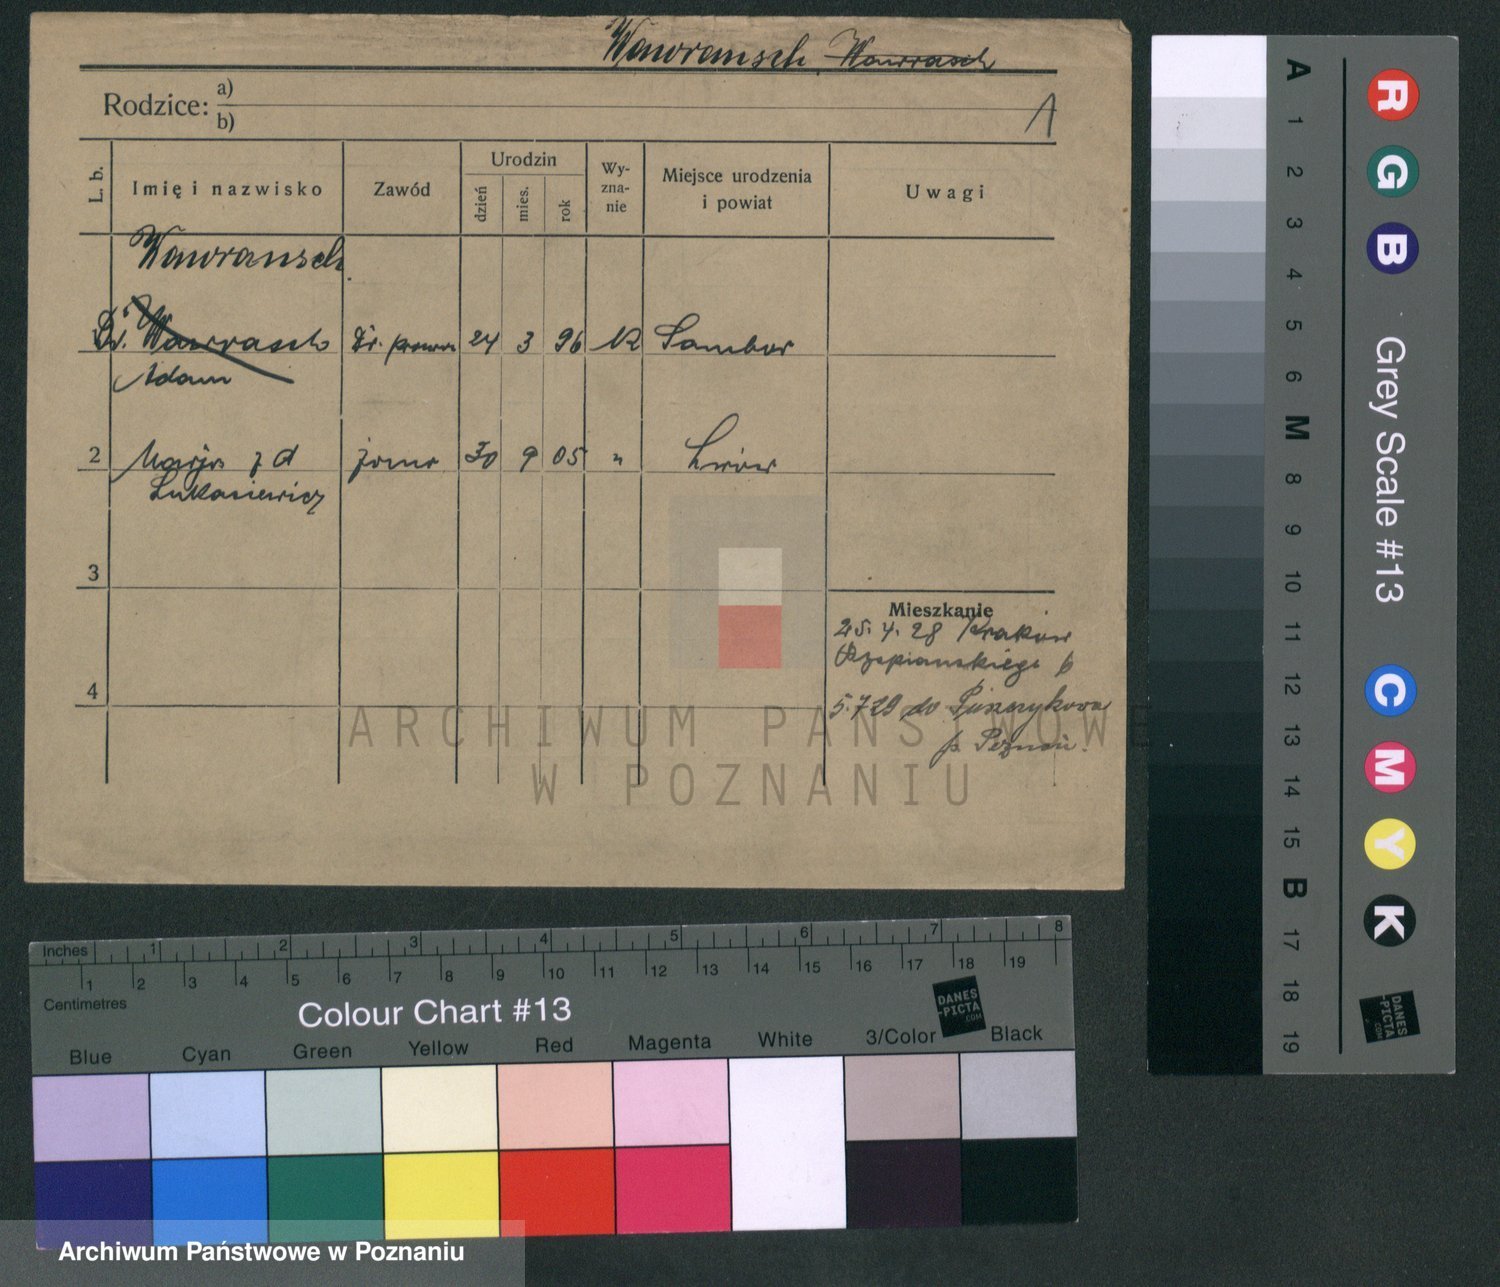 Wawrausch Wawrasch
Rodzice: a)
b)
1
L. b. Imię i nazwisko Zawód Urodzin dzień mies. rok Wy-zna-nie Miejsce urodzenia i powiat Uwagi
Wawrausch
Dr. Wawrasch Dr. prawa 24 3 96 Sambor
Adam
2 Marja z d żona 30 9 05 " Lwów
Łukasiewicz
3
Mieszkanie
25. 4. 28 Krakow
6
4
5.7 29 do
p. Poznań.
ARCHIWUM PAŃSTWOWE
W POZNANIU
A 1 2 3 4 5 6 M 8 9 10 11 12 13 14 15 B 17 18 19
R G B
Grey Scale #13
C M Y K
DANES
-PICTA
.COM
Inches 1 2 3 4 5 6 7 8
1 2 3 4 5 6 7 8 9 10 11 12 13 14 15 16 17 18 19
Centimetres
Colour Chart #13
DANES
-PICTA
.COM
Blue Cyan Green Yellow Red Magenta White 3/Color Black
Archiwum Państwowe w Poznaniu